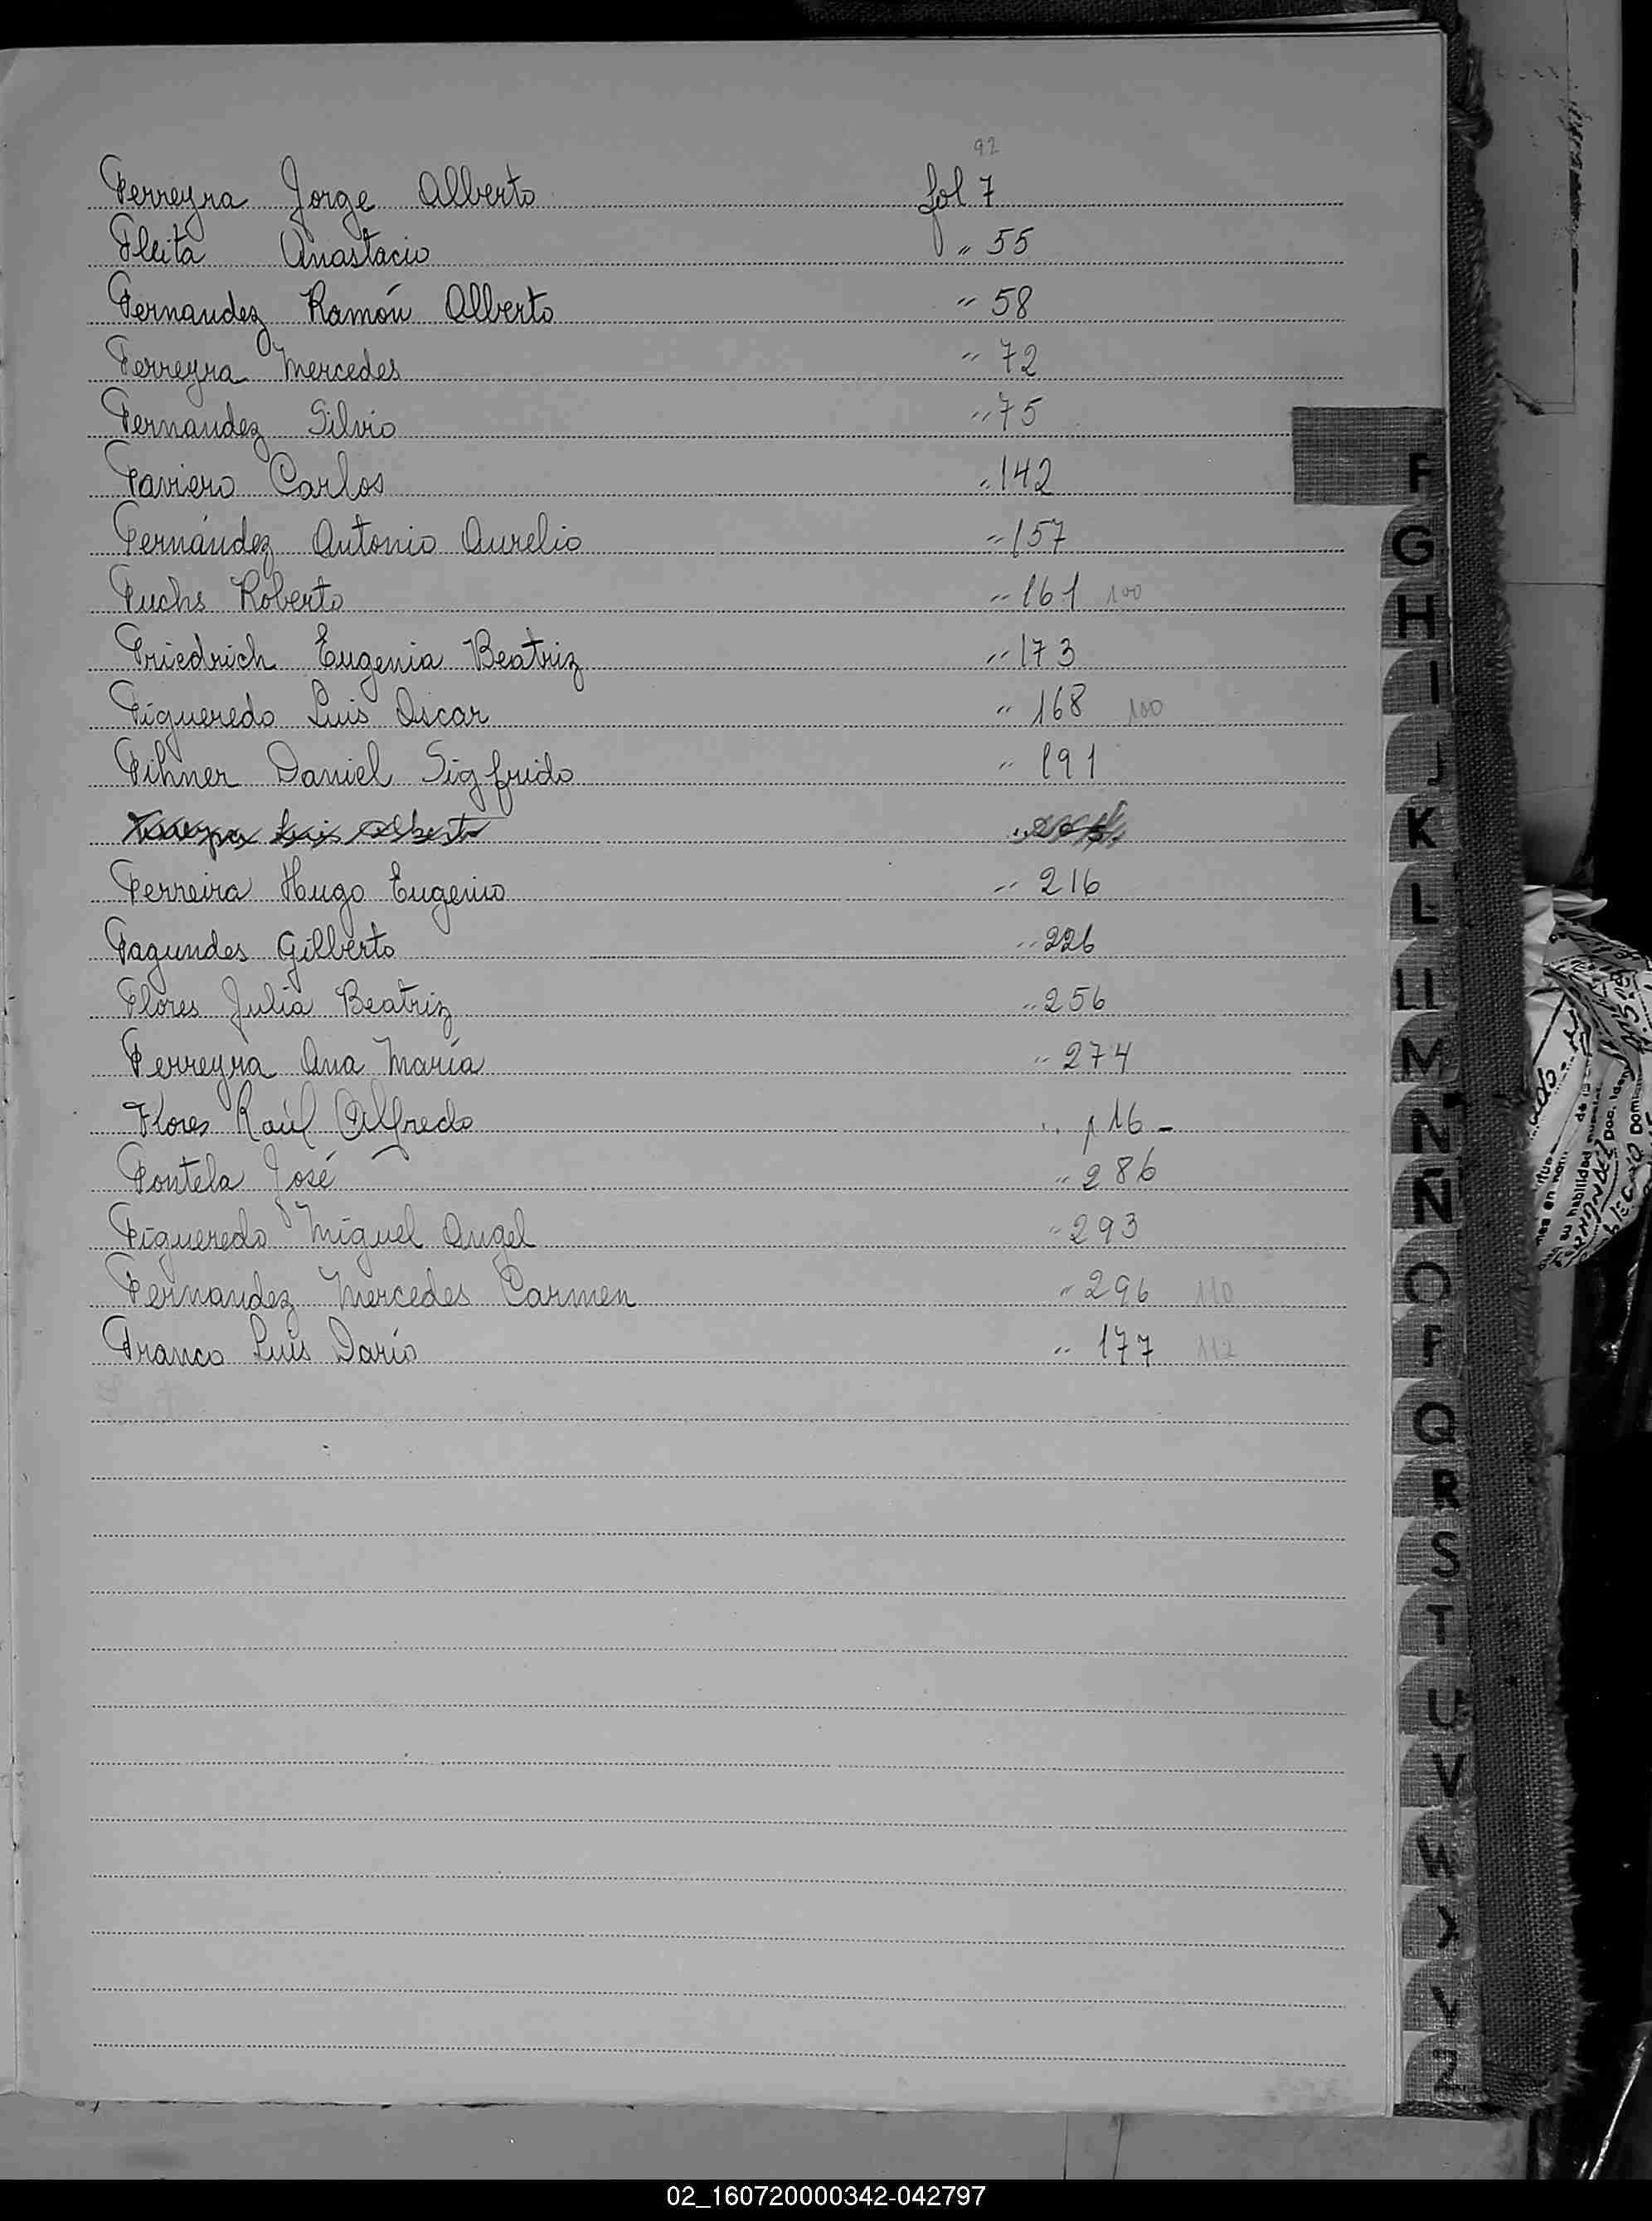 92
Ferreyra Jorge Alberto fol 7
Fleita Anastacio " 55
Fernandez Ramón Alberto " 58
Ferreyra Mercedes " 72
Fernandez Silvio " 75
Faviero Carlos " 142
Fernández Antonio Aurelio " 157
Fuchs Roberto " 161 100
Friedrich Eugenia Beatriz " 173
Figueredo Luis Oscar " 168 100
Fihner Daniel Sigfrido " 191
Luis Alberto
Ferreira Hugo Eugenio " 216
Fagundes Gilberto " 226
Flores Julia Beatriz " 256
Ferreyra Ana María " 274
Flores Raúl Alfredo " 116 -
Fontela José " 286
Figueredo Miguel Angel " 293
Fernandez Mercedes Carmen " 296 110
Franco Luis Dario " 177 112
F
G
H
I
J
K
L
LI
M
N
Ñ
O
P
Q
R
S
T
U
V
W
X
Y
Z
02_160720000342-042797